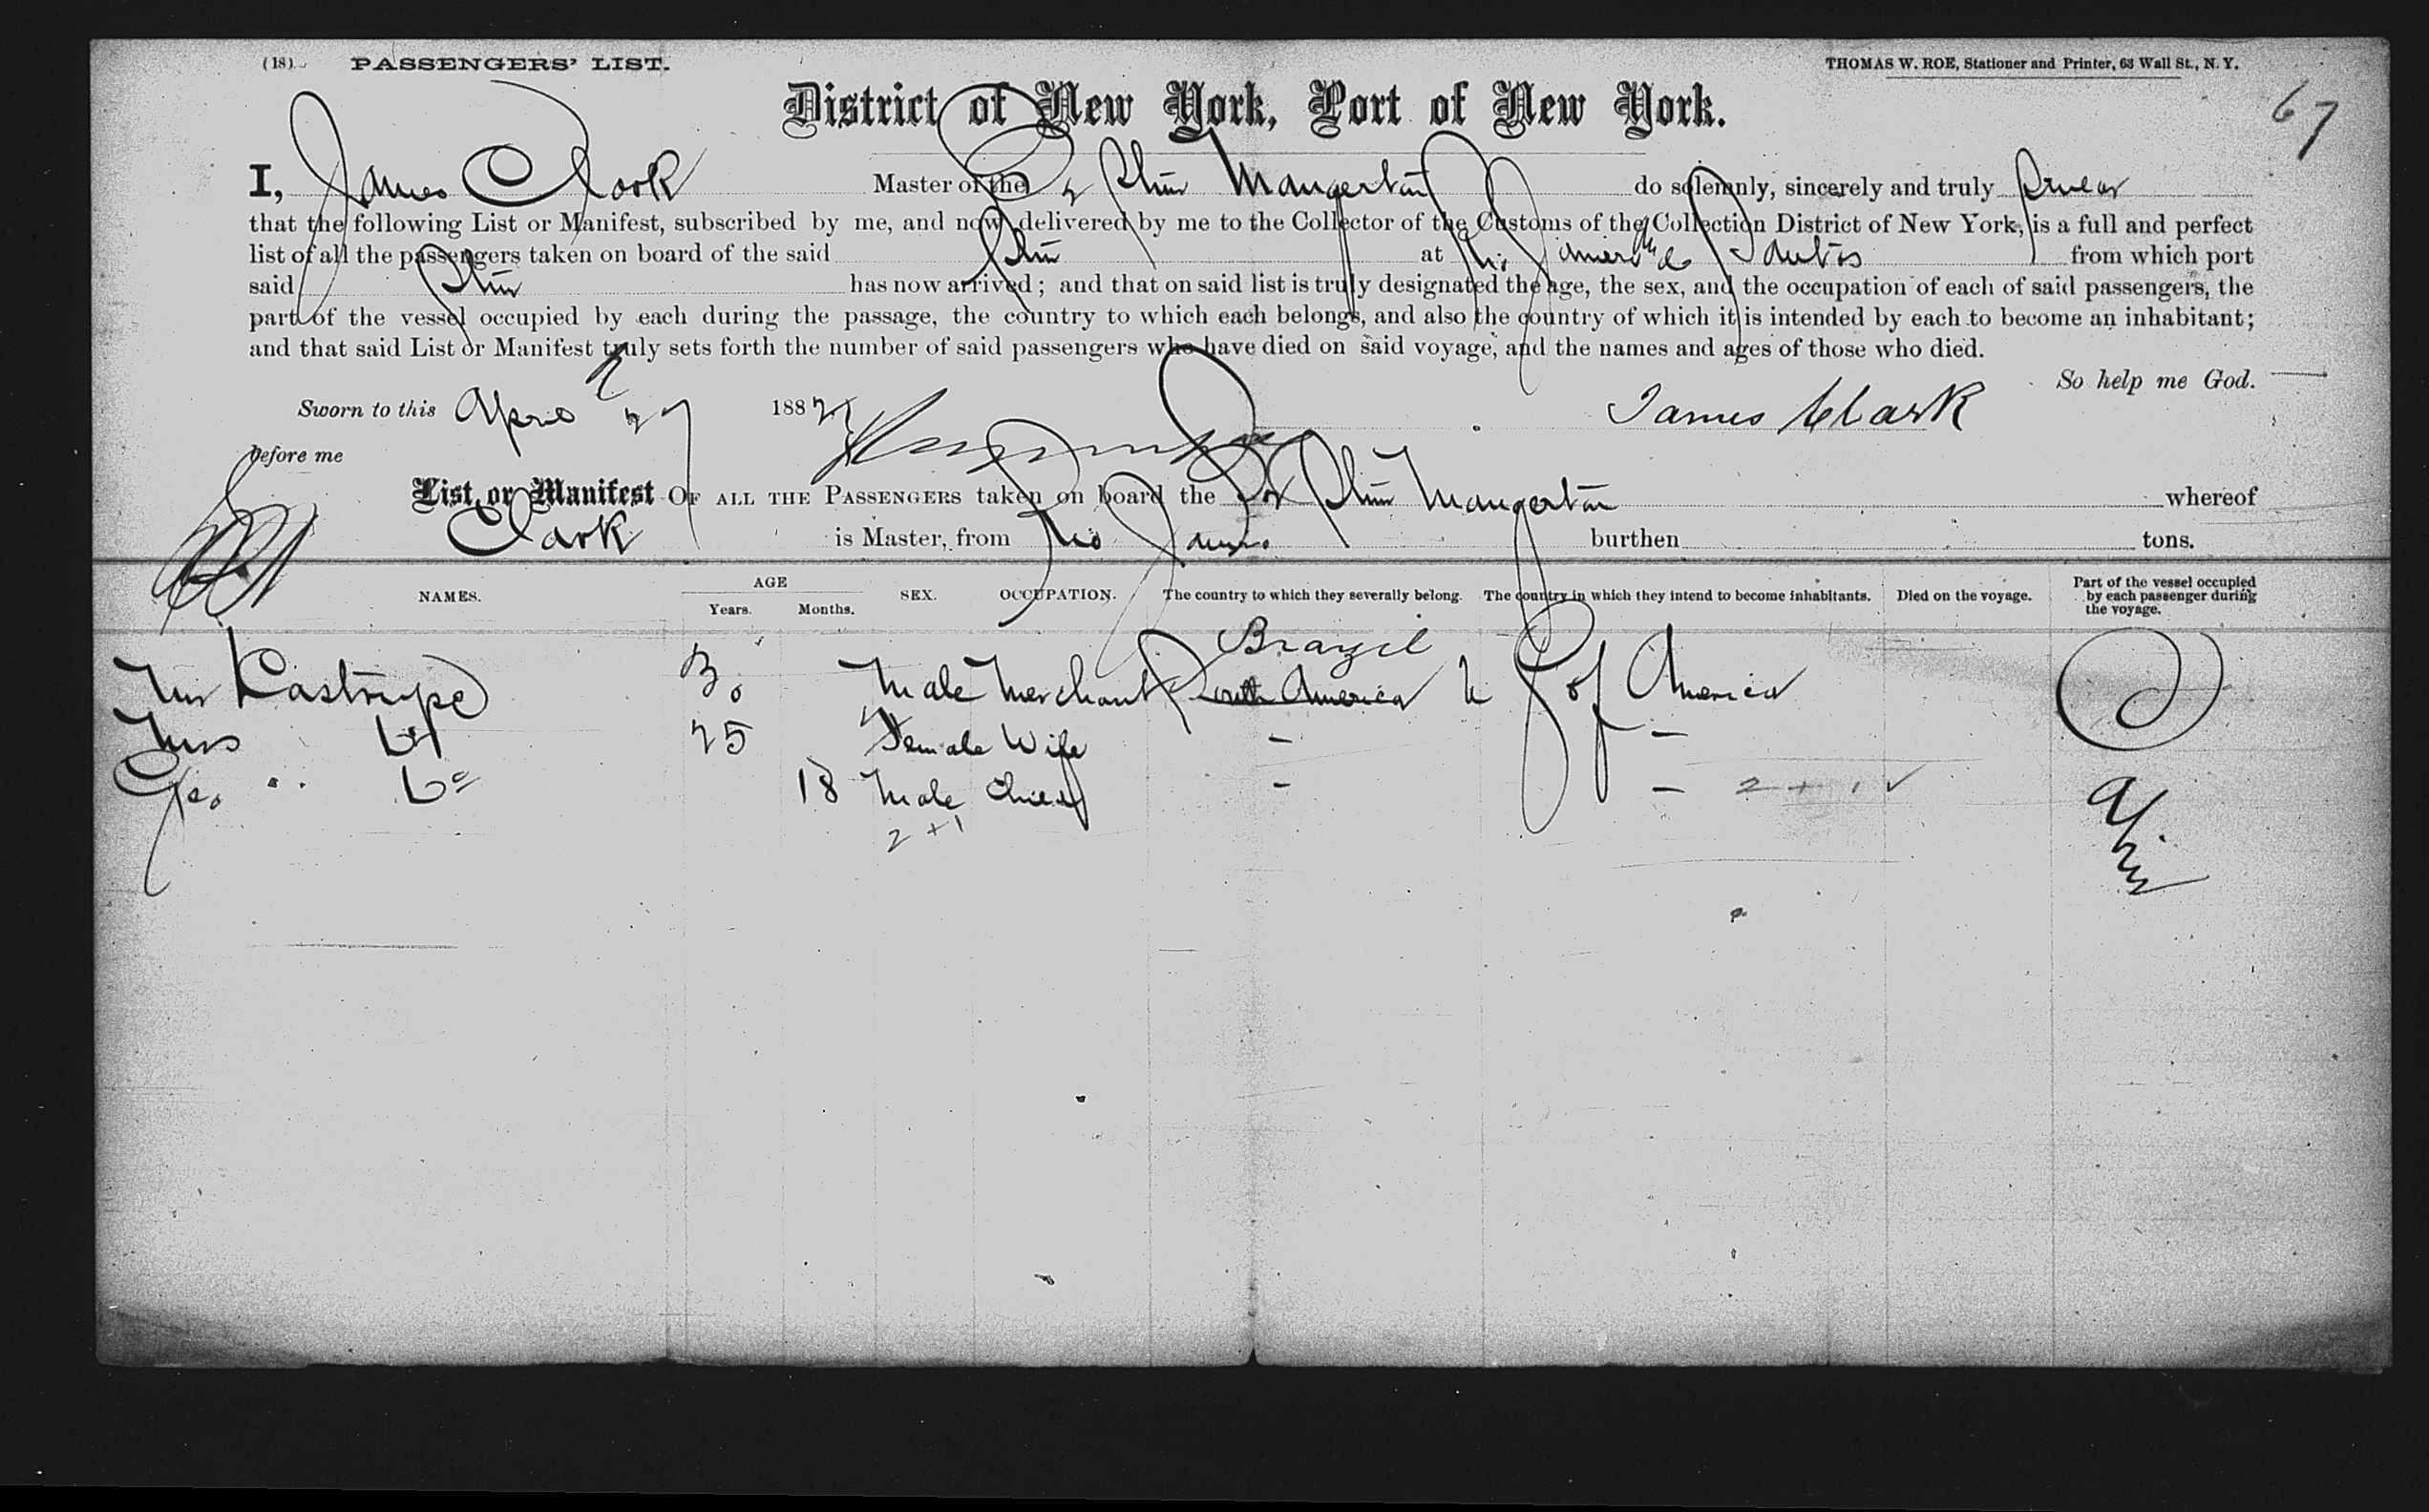 (18) PASSENGERS' LIST.
THOMAS W. ROE, Stationer and Printer, 63 Wall St., N. Y.
67
District of New York, Port of New York.
I, James Clark Master of the Mangerton do solemnly, sincerely and truly swear
that the following List or Manifest, subscribed by me, and now delivered by me to the Collector of the Customs of the Collection District of New York, is a full and perfect
list of all the passengers taken on board of the said at Santos from which port
said has now arrived; and that on said list is truly designated the age, the sex, and the occupation of each of said passengers, the
part of the vessel occupied by each during the passage, the country to which each belongs, and also the country of which it is intended by each to become an inhabitant;
and that said List or Manifest truly sets forth the number of said passengers who have died on said voyage, and the names and ages of those who died.
So help me God.
Sworn to this April 27 1882 James Clark
before me
List or Manifest OF ALL THE PASSENGERS taken on board the Mangerton whereof
Clark is Master, from Rio burthen tons.
NAMES. AGE Years. Months. SEX. OCCUPATION. The country to which they severally belong. The country in which they intend to become inhabitants. Died on the voyage. Part of the vessel occupied by each passenger during the voyage.
Brazil
Mr 30 Male Merchant South America U S of America
Mrs 25 Female Wife - -
Geo Do 18 Male Child - - 2 + 1 ✓
2 + 1